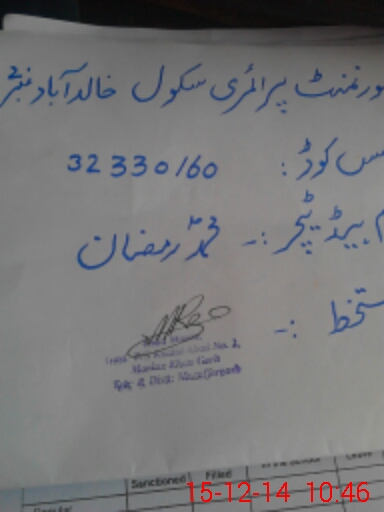 ورنمنٹ پرائمری سکول خالدآباد نمبر 2
س کوڈ : 32330160
م ہیڈ ٹیچر :- محمد رمضان
ستخط :-
Head
No. 2,
Khan Garh
& Distt: Muzaffargarh
Sanctioned Filled
15-12-14 10:46